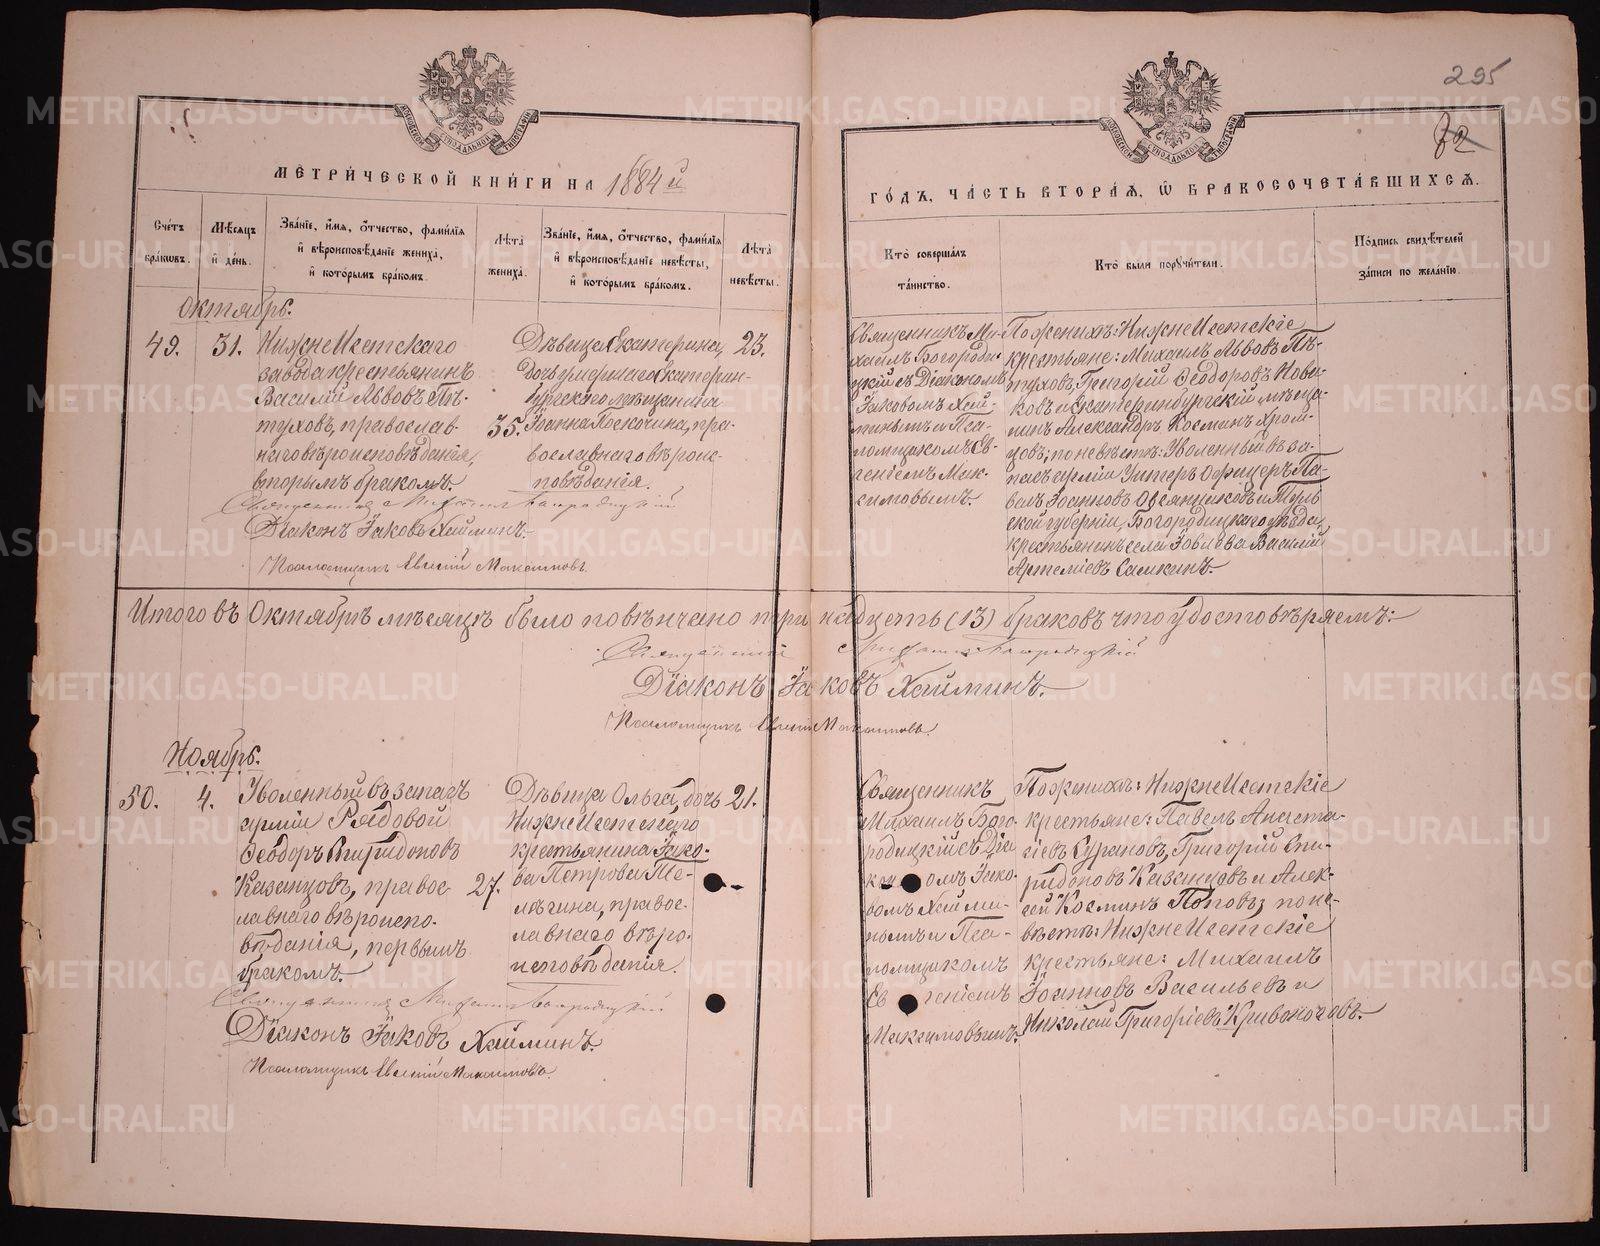 295
82
МОСКОВСКОЙ СѴНОДАЛЬНОЙ ТИПОГРАФІИ
МОСКОВСКОЙ СѴНОДАЛЬНОЙ ТИПОГРАФІИ
МЕТРИ́ЧЕСКОЙ КНИ́ГИ НА 1884й
ГО́ДЪ, ЧА́СТЬ ВТОРА́Я, Ѡ БРАКОСОЧЕТА́ВШИХСЯ.
Сче́тъ
бра́ковъ.
Мѣ́сяцъ
и де́нь.
Зва́ніе, и́мя, о́тчество, фами́лія
и вѣроисповѣ́даніе жениха̀,
и кото́рымъ бра́комъ.
Лѣ́та
жениха̀.
Зва́ніе, и́мя, о́тчество, фами́лія
и вѣроисповѣ́даніе невѣ́сты,
и кото́рымъ бра́комъ.
Лѣ́та
невѣ́сты.
Кто̀ соверша́лъ
та́инство.
Кто̀ бы́ли поручи́тели.
По́дпись свидѣ́телей
за́писи по жела́нію.
Октябрь.
49.
31.
НижнеИсетскаго
завода крестьянинъ
Василій Львовъ Пѣ-
туховъ, православ-
наго вѣроисповѣданія,
вторымъ бракомъ.
35.
Дѣвица Екатерина,
дочь умершаго Екатерин-
бургскаго мѣщанина
Іоанна Поскочина, пра-
вославнаго вѣроис-
повѣданія.
23.
Священникъ Ми-
хаилъ Богороди-
цкій съ Діакономъ
Іаковомъ Хай-
минымъ и Пса-
ломщикомъ Ев-
геніемъ Мак-
симовымъ.
По женихѣ: НижнеИсетскіе
крестьяне: Михаилъ Львовъ Пѣ-
туховъ, Григорій Ѳеодоровъ Нови-
ковъ и Екатеринбургскій мѣща-
нинъ Александръ Косминъ Хром-
цовъ; по невѣстѣ: Уволенный въ за-
пасъ арміи Унтеръ Офицеръ Па-
велъ Іоанновъ Овсянниковъ и Туль
ской губерніи, Богородицкаго уѣзда,
крестьянинъ села Іовлева Василій
Артеміевъ Самкинъ.
Священникъ Михаилъ Богородицкій
Діаконъ Іаковъ Хайминъ.
Псаломщикъ Евгеній Максимовъ.
Итого въ Октябрѣ мѣсяцѣ было повѣнчано тринадцать (13) браковъ что удостовѣряемъ:
Священникъ Михаилъ Богородицкій
Діаконъ Іаковъ Хайминъ.
Псаломщикъ Евгеній Максимовъ.
Ноябрь.
50.
4.
Уволенный въ запасъ
арміи Рядовой
Ѳеодоръ Спиридоновъ
Казанцовъ, правос-
лавнаго вѣроиспо-
вѣданія, первымъ
бракомъ.
27.
Дѣвица Ольга, дочь
НижнеИсетскаго
крестьянина Іако-
ва Петрова Те-
мѣгина, правос-
лавнаго вѣро-
исповѣданія.
21.
Священникъ
Михаилъ Бого-
родицкій съ Діа
кономъ Іако-
вомъ Хайми-
нымъ и Пса-
ломщикомъ
Евгеніемъ
Максимовымъ.
По женихѣ: НижнеИсетскіе
крестьяне: Павелъ Анаста-
сіевъ Сурановъ, Григорій Спи-
ридоновъ Казанцовъ и Алек-
сѣй Косминъ Поповъ; по не-
вѣстѣ: НижнеИсетскіе
крестьяне: Михаилъ
Іоанновъ Васильевъ и
Николай Григоріевъ Кривоноговъ.
Священникъ Михаилъ Богородицкій
Діаконъ Іаковъ Хайминъ.
Псаломщикъ Евгеній Максимовъ.
METRIKI.GASO-URAL.RU